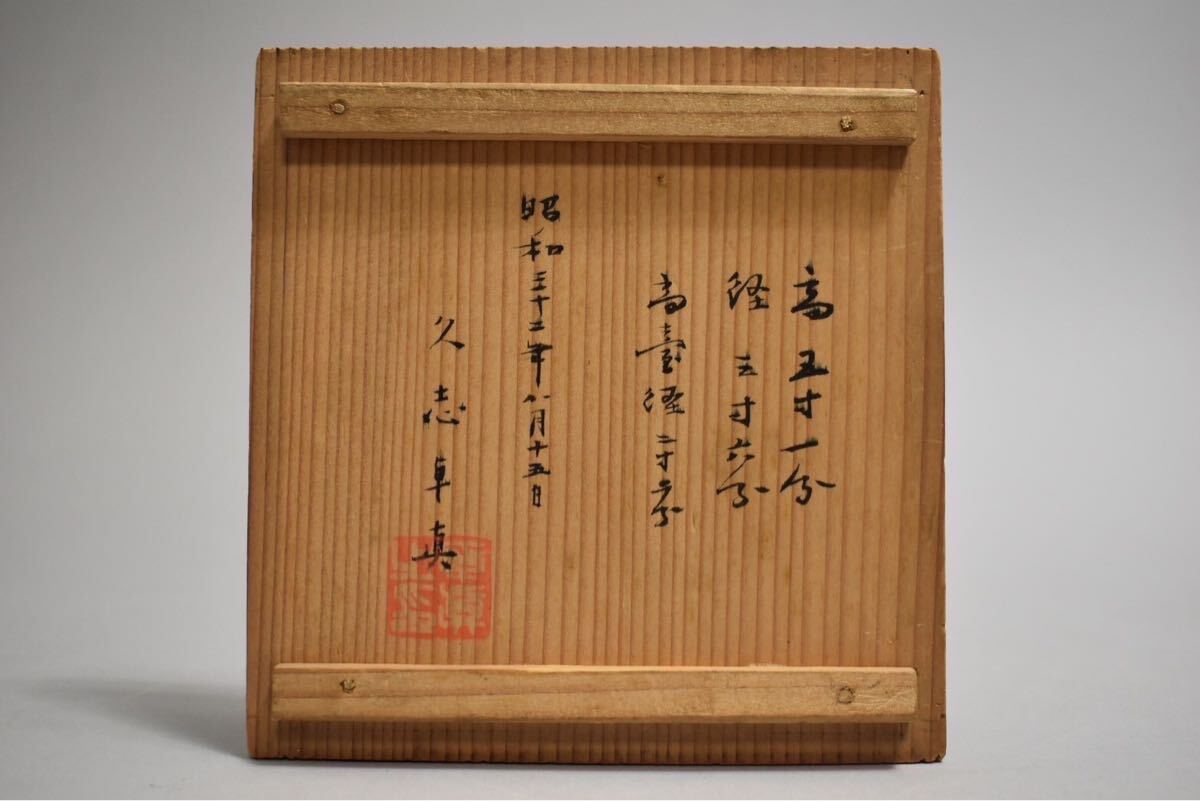 高 五寸一分
径 五寸六分
高臺径 二寸
昭和三十二年八月十五日
久志卓真